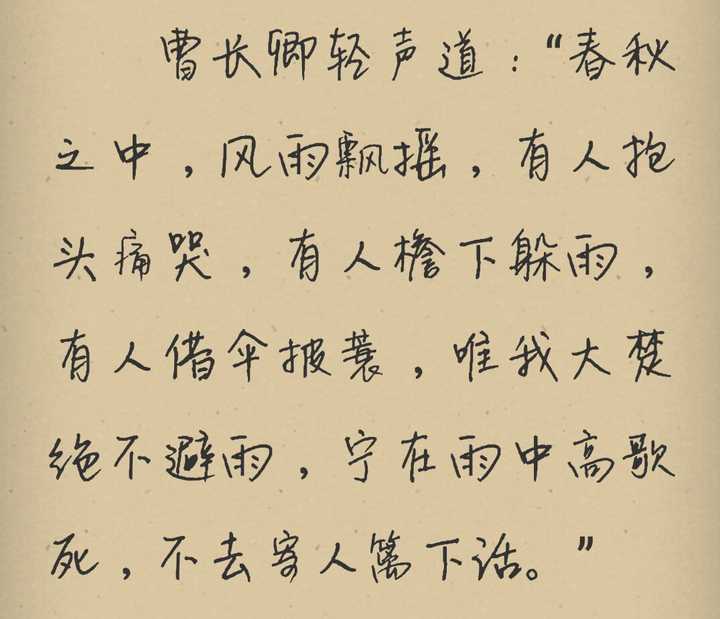 曹长卿轻声道：“春秋
之中，风雨飘摇，有人抱
头痛哭，有人檐下躲雨，
有人借伞披蓑，唯我大楚
绝不避雨，宁在雨中高歌
死，不去寄人篱下话。”